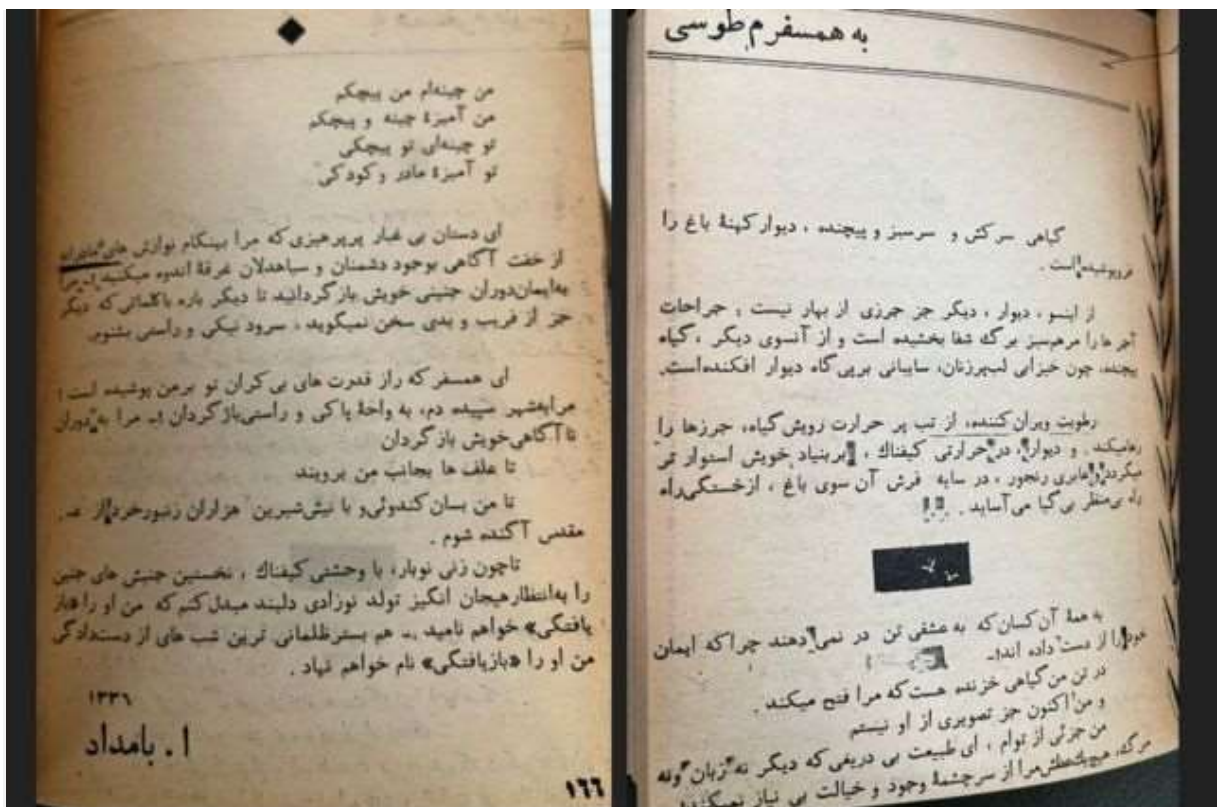 به همسفرم طوسی
گیاهی سرکش و سرسبز و پیچنده ، دیوار کهنهٔ باغ را
فروپوشیده است .
از اینسو ، دیوار ، دیگر جز جرزی از بهار نیست ; جراحات
آجرها را مرهم سبز برگ شفا بخشیده است و از آنسوی دیگر ، گیاه
پیچنده، چون خیزابی لب‌پرزنان، سایبانی برپی گاه دیوار افکنده‌است.
رطوبت ویران کننده، از تب پر حرارت رویش گیاه، جرزها را
رها میکند . و دیوار، در حرارتی کیفناك ، بربنیاد خویش استوار تر
میگردد و عابری رنجور ، در سایه فرش آن سوی باغ ، از خستگی راه
راه بی‌منظر بی‌گیا می‌آساید .
به همهٔ آن کسان که به عشقی تن در نمی‌دهند چرا که ایمان
خود را از دست داده اند؛ـ
در تن من گیاهی خزنده هست که مرا فتح میکند .
و من اکنون جز تصویری از او نیستم
من جزئی از توام ، ای طبیعت بی دریغی که دیگر نه زبان و نه
مرگ، هیچیك مرا از سرچشمهٔ وجود و خیالت بی نیاز نمیکند؛ـ
من چینه‌ام من پیچکم
من آمیزهٔ چینه و پیچکم
تو چینه‌ای تو پیچکی
تو آمیزهٔ مادر و کودکی
ای دستان بی غبار پرپرهیزی که مرا بهنگام نوازش های مادرانه
از خفت آگاهی بوجود دشمنان و سیاهدلان غرقهٔ اندوه میکنید ؛ـ مرا
به‌ایمان دوران جنینی خویش باز گردانید تا دیگر باره با کلماتی که دیگر
جز از فریب و بدی سخن نمیگوید ، سرود نیکی و راستی بشنوم.
ای همسفر که راز قدرت های بی کران تو برمن پوشیده است ؛
مرابه‌شهر سپیده دم، به واحهٔ پاکی و راستی بازگردان ؛ـ مرا به دوران
ناآگاهی خویش باز گردان
تا علف ها بجانب من برویند
تا من بسان کندوئی و با نیش شیرین هزاران زنبور خرد از
مقدس آکنده شوم .
تاچون زنی نوبار، با وحشتی کیفناك ، نخستین جنبش های جنین
را به‌انتظار هیجان انگیز تولد نوزادی دلبند مبدل کنم که من او را «باز
یافتگی» خواهم نامید ،ـ هم بستر ظلمانی ترین شب های از دست‌دادگی
من او را «بازیافتگی» نام خواهم نهاد .
۱۳۳٦
ا . بامداد
۱٦٦